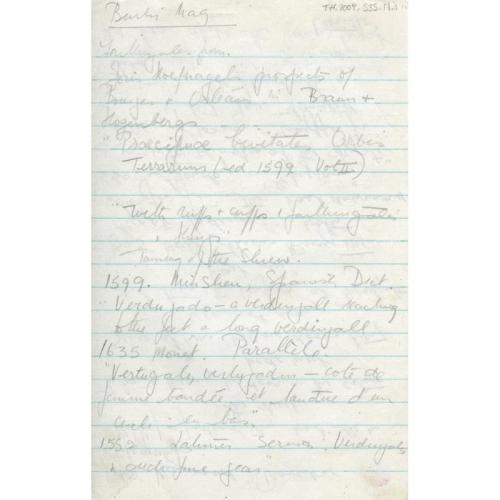 Burl: Mag
TH.2009.535.
Farthingales from.
Joris Hoefnagels prospects of
Bourges & Orleans in Braun &
Hogenbergs
"Praecipuae Civitates Orbis
Terrarum (ed 1599 Vol III)
"With ruffs & cuffs & farthingales
& things"
Taming of the Shrew.
1599. Minshen, Spanish Dict.
"Verdugado - a verdingall reaching
to the feet a long verdingall
1635 Monet. Parallèle
"Vertugale, vertugadin - cote de
femme bandée, et tendue d'un
cercle en bas".
1552 Latimer Sermon, Verdingals
&